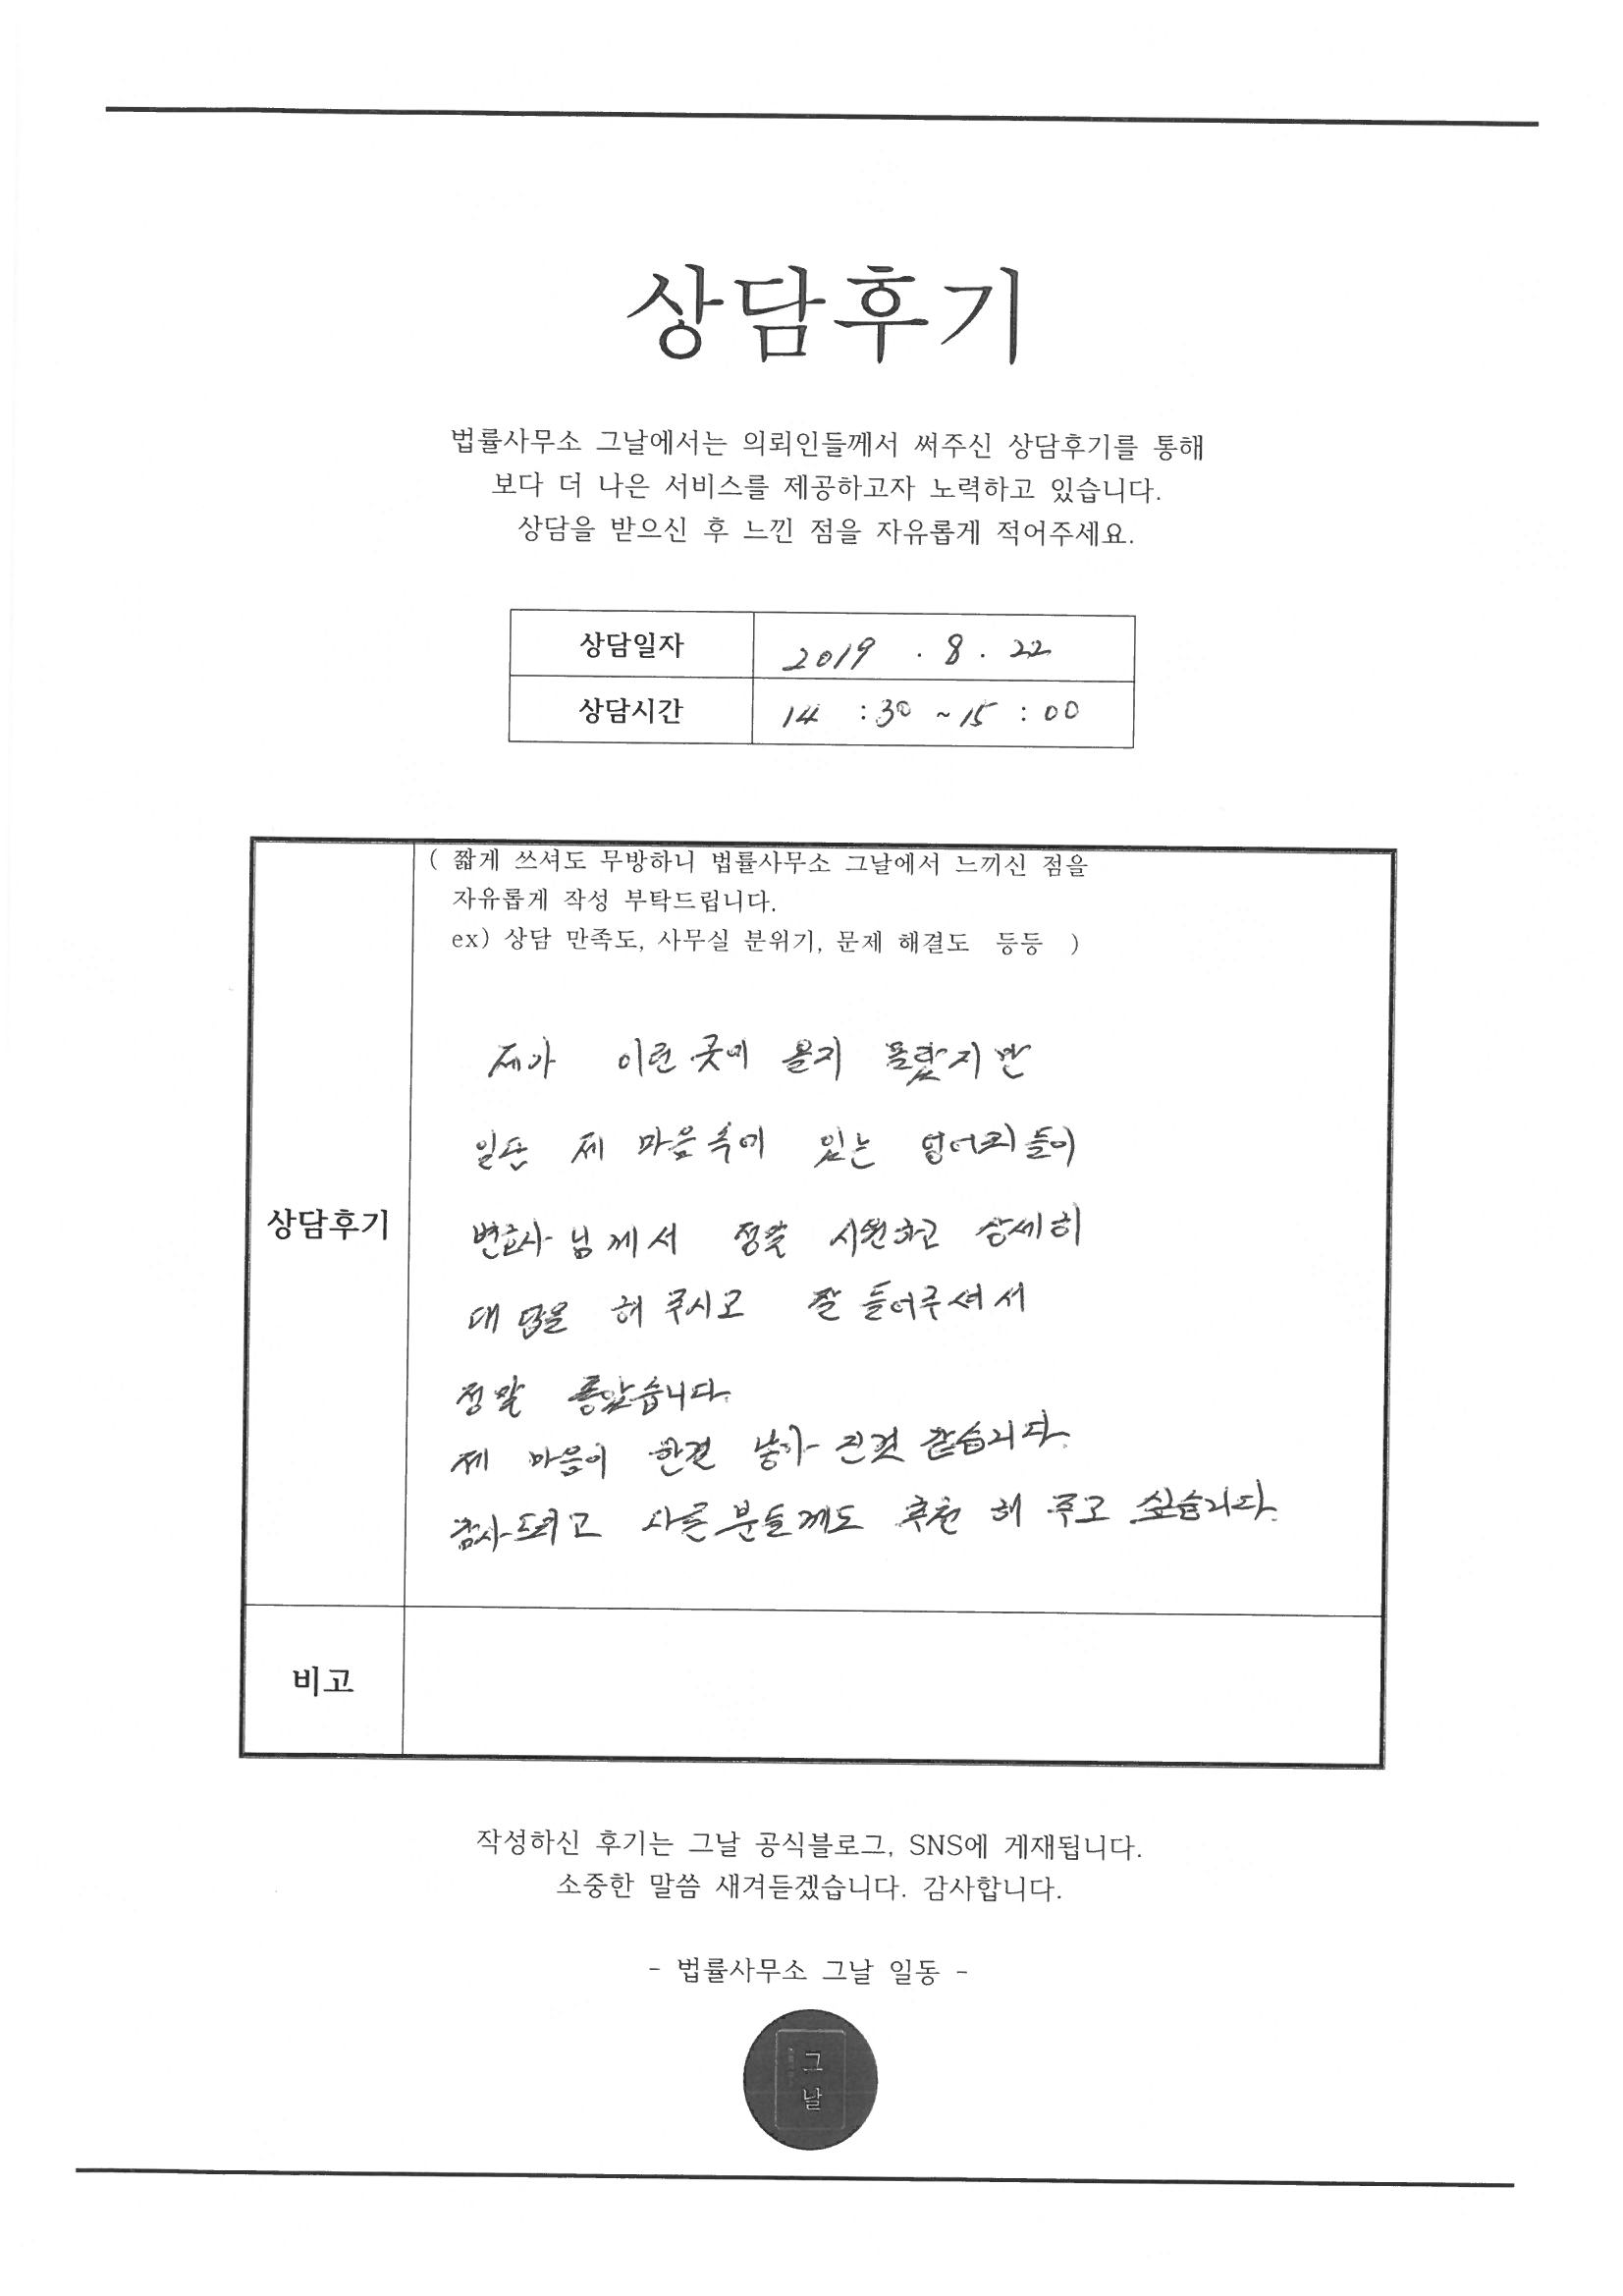 상담후기
법률사무소 그날에서는 의뢰인들께서 써주신 상담후기를 통해
보다 더 나은 서비스를 제공하고자 노력하고 있습니다.
상담을 받으신 후 느낀 점을 자유롭게 적어주세요.
상담일자 2019 . 8 . 22
상담시간 14 : 30 ~ 15 : 00
( 짧게 쓰셔도 무방하니 법률사무소 그날에서 느끼신 점을
자유롭게 작성 부탁드립니다.
ex) 상담 만족도, 사무실 분위기, 문제 해결도 등등 )
제가 이런 곳에 올지 몰랐지만
일단 제 마음속에 있는 덩어리들이
상담후기
변호사님께서 정말 시원하고 상세히
대답을 해 주시고 잘 들어주셔서
정말 좋았습니다.
제 마음이 한결 낳아진것 같습니다.
감사드리고 다른 분들께도 추천 해 주고 싶습니다.
비고
작성하신 후기는 그날 공식블로그, SNS에 게재됩니다.
소중한 말씀 새겨듣겠습니다. 감사합니다.
- 법률사무소 그날 일동 -
그
날